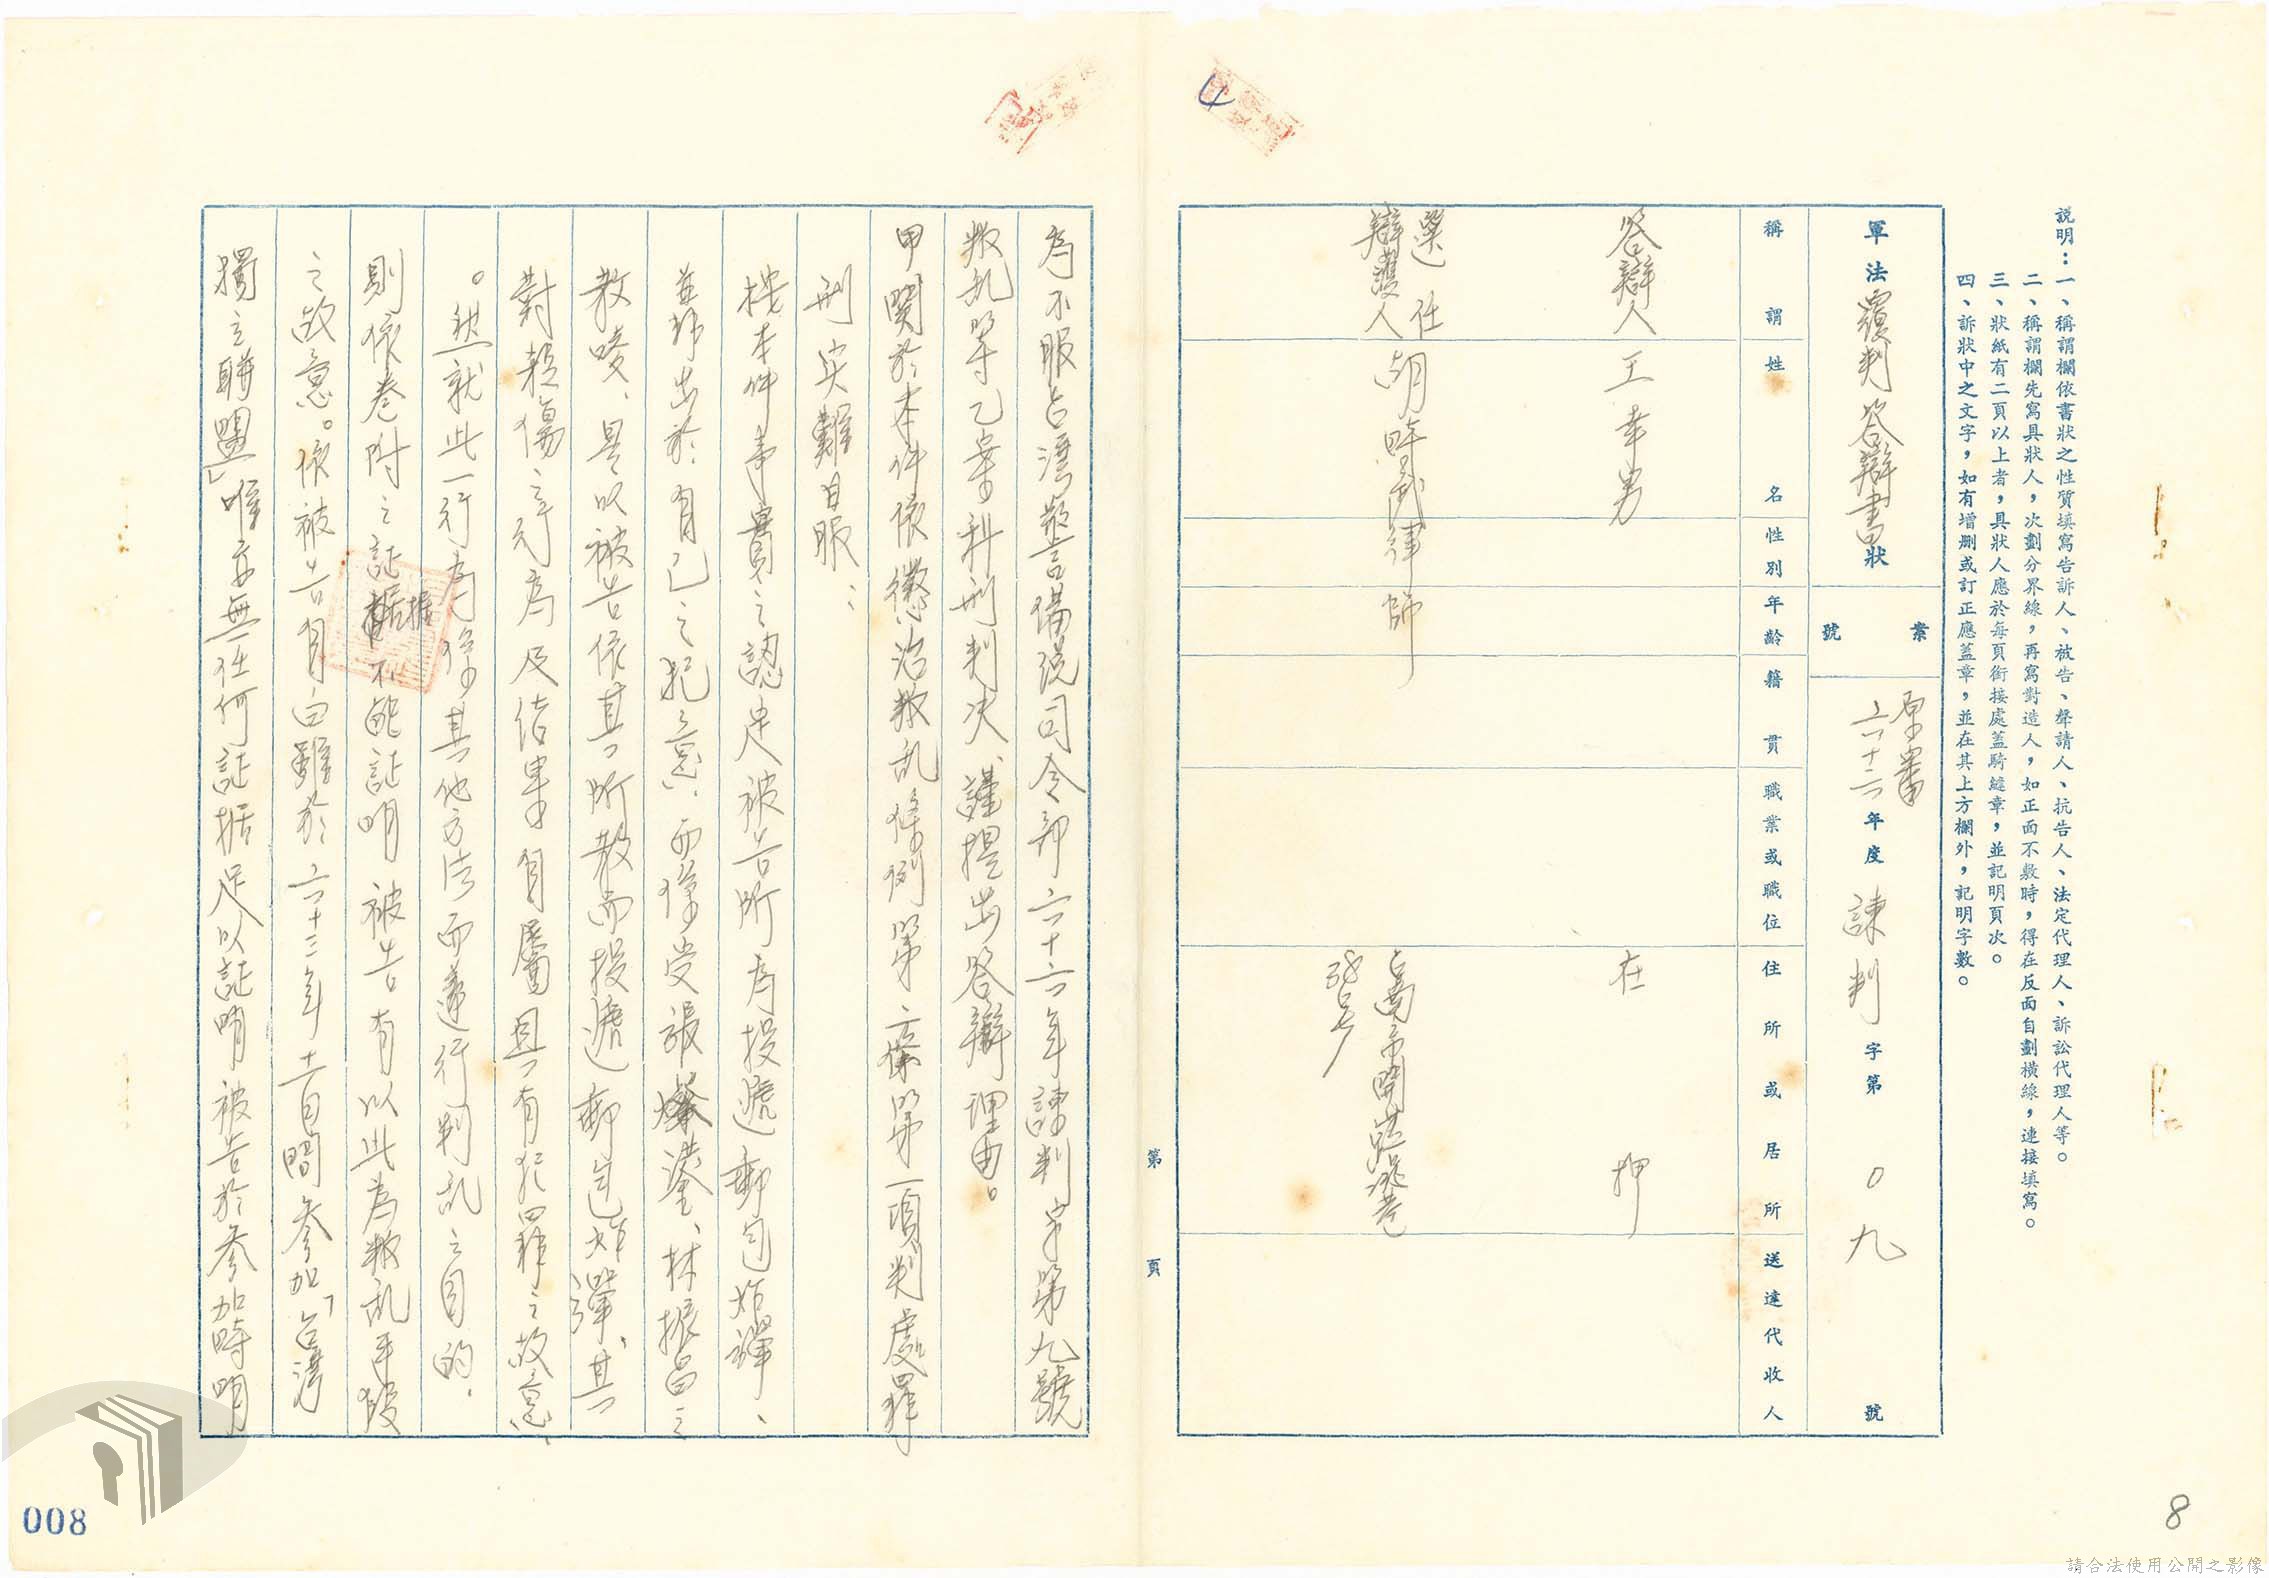 說明：一、稱謂欄依書狀之性質填寫告訴人、被告、聲請人、抗告人、法定代理人、訴訟代理人等。
二、稱謂欄先寫具狀人，次劃分界線，再寫對造人，如正面不敷時，得在反面自劃橫線，連接填寫。
三、狀紙有二頁以上者，具狀人應於每頁銜接處蓋騎縫章，並記明頁次。
四、訴狀中之文字，如有增刪或訂正應蓋章，並在其上方欄外，記明字數。
軍法覆判答辯書狀
案號
原審六十六年度諫判字第〇九號
稱謂 姓名 性別 年齡 籍貫 職業或職位 住所或居所 送達代收人
答辯人 王幸男 在押
選任辯護人 胡時武律師
38號
4
第 頁
為不服台灣警備總司令部六十六年諫判字第九號
叛乱等乙案科刑判决、謹提出答辯理由。
甲關於本件依懲治叛乱條例第二條第一項判處罪
刑實難甘服：
按本件事實之認定被告所為投遞郵包炸彈、
並非出於自己之犯意、而係受張燦鍙、林振昌之
教唆、是以被告依其所教而投遞郵包炸彈、其
對殺傷之行為及結果自屬具有犯罪之故意、
。然就此一行為係其他方法而遂行判乱之目的，
則依卷附之証據不能証明被告有以此為叛乱手段
之故意。依被告自白雖於六十三年 間參加「台灣
獨立聯盟」唯亦無任何証据足以証明被告於參加時明
008
8
請合法使用公開之影像